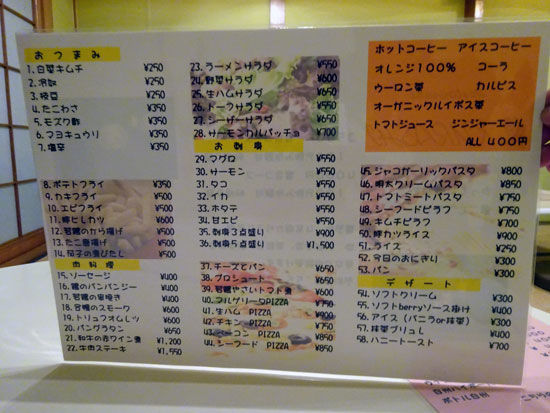 おつまみ
1. 白菜キムチ ¥250
2. 冷奴 ¥250
3. 枝豆 ¥250
4. たこわさ ¥350
5. モズク酢 ¥350
6. マヨキュウリ ¥350
7. 塩辛 ¥350
8. ポテトフライ ¥350
9. カキフライ ¥500
10. エビフライ ¥500
11. 棒ヒレカツ ¥600
12. 若鶏のから揚げ ¥500
13. たこ唐揚げ ¥500
14. 茄子の煮びたし ¥550
肉料理
15. ソーセージ ¥400
16. 鶏のバンバンジー ¥400
17. 若鶏の串焼き ¥400
18. 合鴨のスモーク ¥600
19. トリュフオムレツ ¥600
20. パングラタン ¥650
21. 和牛の赤ワイン煮 ¥1,200
22. 牛肉ステーキ ¥1,550
23. ラーメンサラダ ¥550
24. 野菜サラダ ¥600
25. 生ハムサラダ ¥650
26. トーフサラダ ¥650
27. シーザーサラダ ¥650
28. サーモンカルパッチョ ¥700
お刺身
29. マグロ ¥550
30. サーモン ¥550
31. タコ ¥550
32. イカ ¥550
33. ホタテ ¥550
34. 甘エビ ¥550
35. 刺身3点盛り ¥900
36. 刺身5点盛り ¥1,500
37. チーズとパン ¥650
38. プロシュート ¥650
39. 若鶏やさいトマト煮 ¥650
40. マルゲリータPIZZA ¥750
41. 生ハム PIZZA ¥900
42. チキン PIZZA ¥850
43. ベーコン PIZZA ¥850
44. シーフード PIZZA ¥850
ホットコーヒー アイスコーヒー
オレンジ100% コーラ
ウーロン茶 カルピス
オーガニックルイボス茶
トマトジュース ジンジャーエール
ALL 400円
45. ジャコガーリックパスタ ¥800
46. 明太クリームパスタ ¥850
47. トマトミートパスタ ¥750
48. シーフードピラフ ¥750
49. キムチピラフ ¥700
50. 棒カツライス ¥900
51. ライス ¥250
52. 今日のおにぎり ¥300
53. パン ¥300
デザート
54. ソフトクリーム ¥300
55. ソフトberryソース掛け ¥400
56. アイス(バニラor抹茶) ¥300
57. 抹茶ブリュレ ¥400
58. ハニートースト ¥700